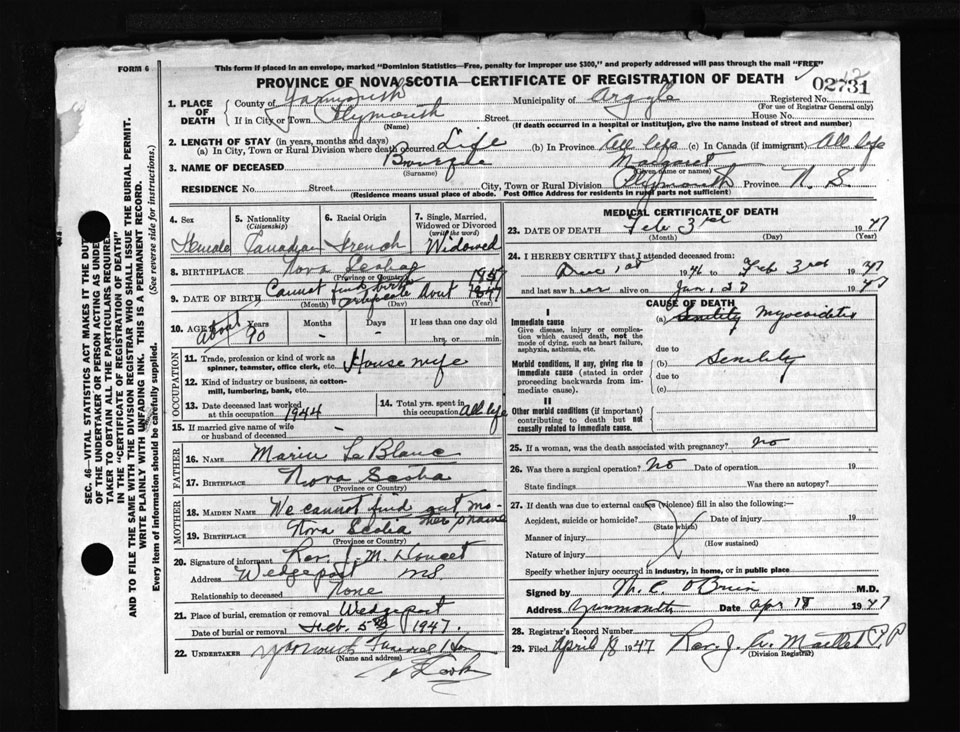 FORM 6
This form if placed in an envelope, marked "Dominion Statistics—Free, penalty for improper use $300," and properly addressed will pass through the mail "FREE"
PROVINCE OF NOVA SCOTIA—CERTIFICATE OF REGISTRATION OF DEATH
02731
1. PLACE OF DEATH
County of Yarmouth Municipality of Argyle Registered No.
(For use of Registrar General only)
If in City or Town Plymouth Street House No.
(Name) (If death occurred in a hospital or institution, give the name instead of street and number)
2. LENGTH OF STAY (in years, months and days)
(a) In City, Town or Rural Division where death occurred Life (b) In Province All life (c) In Canada (if immigrant) All life
3. NAME OF DECEASED Bourque Margaret
(Surname) (Given name or names)
RESIDENCE No. Street City, Town or Rural Division Plymouth Province N. S.
(Residence means usual place of abode. Post Office Address for residents in rural parts not sufficient)
4. Sex Female
5. Nationality (Citizenship) Canadian
6. Racial Origin French
7. Single, Married, Widowed or Divorced (write the word) Widowed
8. BIRTHPLACE Nova Scotia
(Province or Country)
9. DATE OF BIRTH Cannot find birth certificate About
(Month) (Day) (Year)
10. AGE about Years 90 Months - Days - If less than one day old
hrs. or min.
OCCUPATION
11. Trade, profession or kind of work as spinner, teamster, office clerk, etc. House wife
12. Kind of industry or business, as cotton-mill, lumbering, bank, etc.
13. Date deceased last worked at this occupation 1944
14. Total yrs. spent in this occupation All life
15. If married give name of wife or husband of deceased -
FATHER
16. NAME LeBlanc
17. BIRTHPLACE Nova Scotia
(Province or Country)
MOTHER
18. MAIDEN NAME We cannot find out mothers name
19. BIRTHPLACE Nova Scotia
(Province or Country)
20. Signature of informant Rev. J. M. Doucet
Address Wedgeport NS.
Relationship to deceased None
21. Place of burial, cremation or removal Wedgeport
Date of burial or removal Feb. 5th 1947.
22. UNDERTAKER Yarmouth Funeral
(Name and address)
MEDICAL CERTIFICATE OF DEATH
23. DATE OF DEATH Feb 3rd 1947
(Month) (Day) (Year)
24. I HEREBY CERTIFY that I attended deceased from:
Dec 1st 1946 to Feb 3rd 1947
and last saw her alive on Jan. 1947
CAUSE OF DEATH
I
Immediate cause
Give disease, injury or complication which caused death, not the mode of dying, such as heart failure, asphyxia, asthenia, etc.
(a) Senility Myocarditis
due to
Morbid conditions, if any, giving rise to immediate cause (stated in order proceeding backwards from immediate cause).
(b) Senility
due to
(c)
II
Other morbid conditions (if important) contributing to death but not causally related to immediate cause.
25. If a woman, was the death associated with pregnancy? No
26. Was there a surgical operation? No Date of operation 19
State findings Was there an autopsy?
27. If death was due to external causes (violence) fill in also the following:—
Accident, suicide or homicide? Date of injury 19
(State which)
Manner of injury
(How sustained)
Nature of injury
Specify whether injury occurred in industry, in home, or in public place
Signed by M. C. O'Brien M.D.
Address Yarmouth Date Apr 18 1947
28. Registrar's Record Number
29. Filed April 18 1947 Rev. J. W. Maillet P.P
(Division Registrar)
SEC. 46—VITAL STATISTICS ACT MAKES IT THE DUTY
OF THE UNDERTAKER OR PERSON ACTING AS UNDER-
TAKER TO OBTAIN ALL THE PARTICULARS REQUIRED
IN THE "CERTIFICATE OF REGISTRATION OF DEATH"
AND TO FILE THE SAME WITH THE DIVISION REGISTRAR WHO SHALL ISSUE THE BURIAL PERMIT.
WRITE PLAINLY WITH UNFADING INK. THIS IS A PERMANENT RECORD.
Every item of information should be carefully supplied. (See reverse side for instructions.)